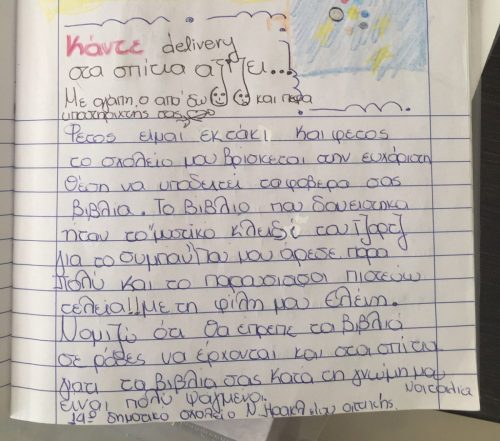 Κάντε delivery
στα σπίτια
Με αγάπη, ο από 'δω και πέρα
υποστηρικτής σας
Φέτος είμαι έκτάκι και φέτος
το σχολείο μου βρίσκεται στην ευχάριστη
θέση να υποδεχτεί τα φοβερά σας
βιβλία. Το βιβλίο που δανείστηκα
ήταν το "μυστικό κλειδί του Τζορτζ
για το σύμπαν" που μου άρεσε πάρα
πολύ και το παρουσίασα πιστεύω
τέλεια!! Με τη φίλη μου Ελένη.
Νομίζω ότι θα έπρεπε τα βιβλία
σε ρόδες να έρχονται και στα σπίτια
γιατί τα βιβλία σας κατά τη γνώμη μου
είναι πολύ ψαγμένα.
Ναταλία
14ο δημοτικό σχολείο Ν. Ηρακλείου αττικής.